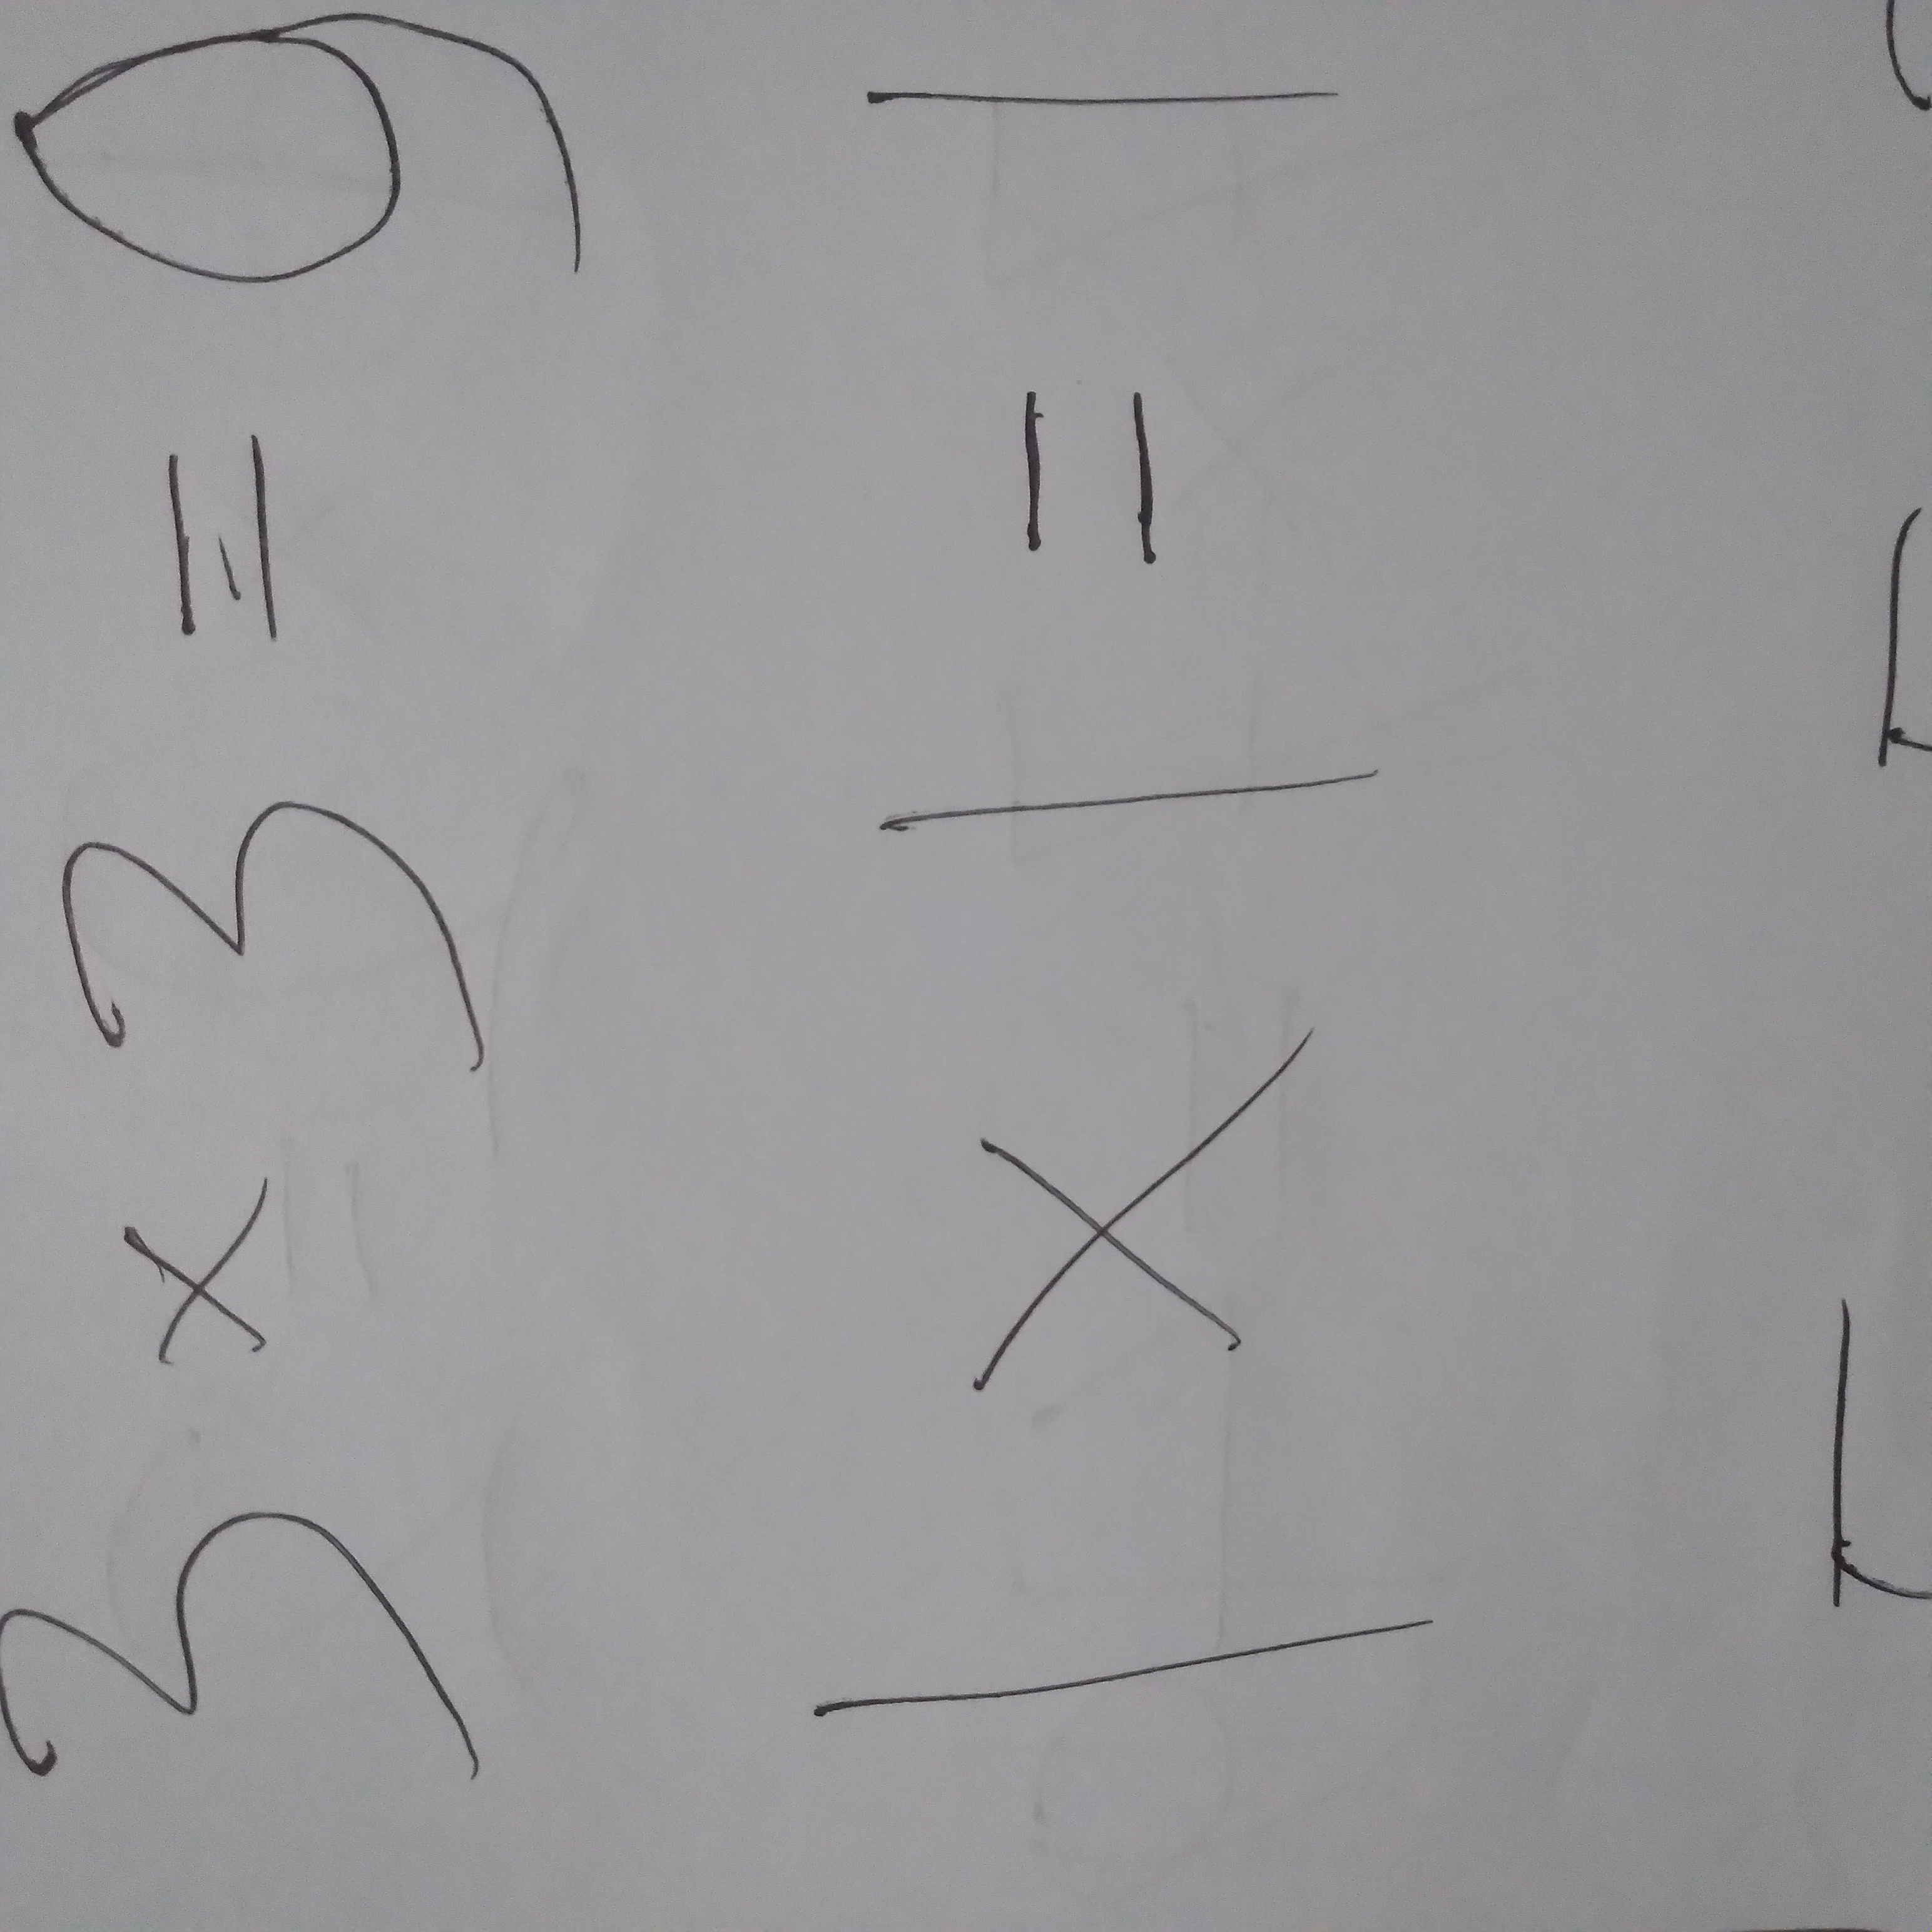 3 × 3 = 9
1 × 1 = 1